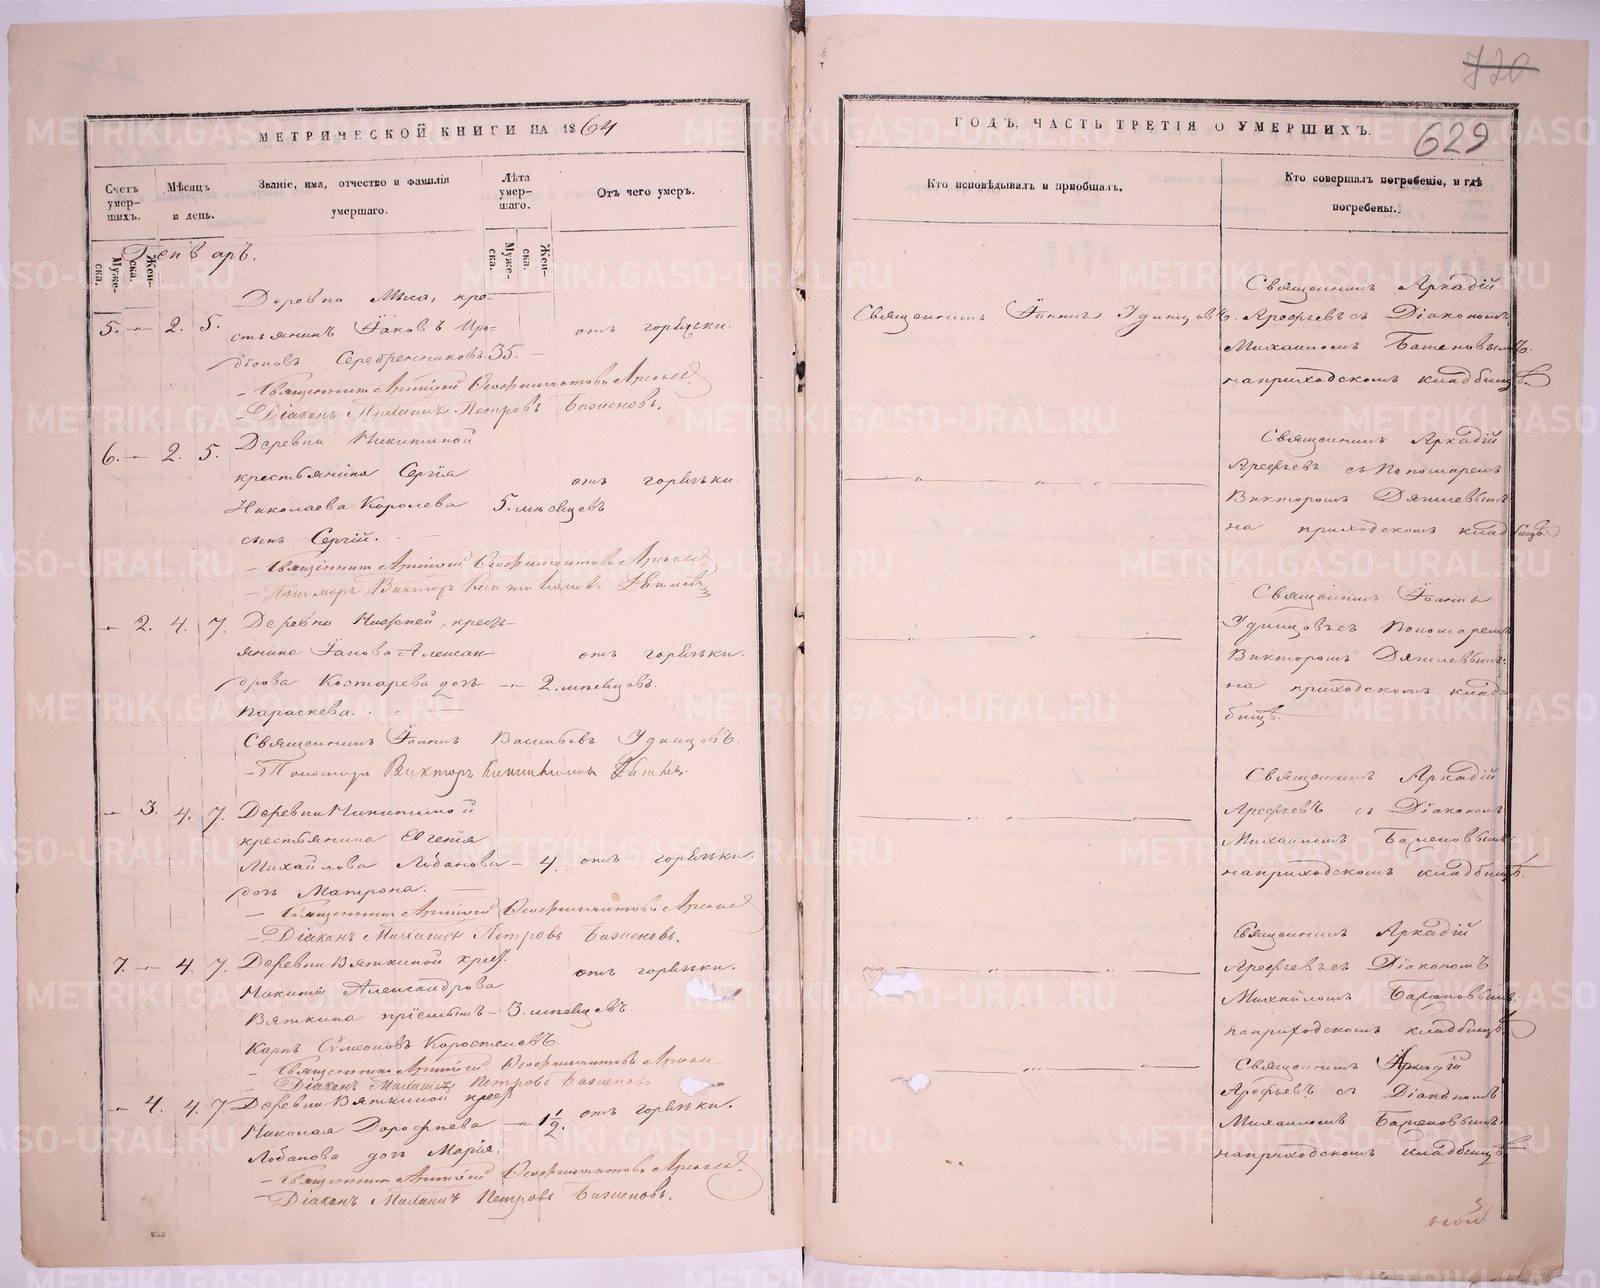 МЕТРИЧЕСКОЙ КНИГИ НА 1864
Счетъ умер-шихъ.
Мѣсяцъ и день.
Званіе, имя, отчество и фамилія умершаго.
Лѣта умер-шаго.
Отъ чего умеръ.
Муже-ска.
Жен-ска.
Муже-ска.
Жен-ска.
Генварь.
5. 2. 5.
Деревни Мыса, кре-
стьянинъ Іаковъ Иро-
діоновъ Серебренниковъ 35.
отъ горячки.
Священникъ
Діаконъ Михаилъ Петровъ Баженовъ.
6. 2. 5.
Деревни Никитиной
крестьянина Сергія
Николаева Королева 5. мѣсяцевъ
сынъ Сергій.
отъ горячки.
Священникъ
Пономарь Викторъ
2. 4. 7.
Деревни Нижней, кресть-
янина Іакова Алексан-
дрова Костарева дочь 2. мѣсяцевъ.
Параскева.
отъ горячки.
Священникъ Іоаннъ Васильевъ Удинцовъ.
Пономарь Викторъ
3. 4. 7.
Деревни Никитиной
крестьянина Евгенія
Михайлова Лобанова 4.
дочь Матрона.
отъ горячки.
Священникъ
Діаконъ Михаилъ Петровъ Баженовъ.
7. 4. 7.
Деревни Вяткиной крест.
Никиты Александрова
Вяткина пріемышъ 3. мѣсяцевъ.
Карпъ Сѵмеоновъ Коростелевъ.
отъ горячки.
Священникъ
Діаконъ Михаилъ Петровъ Баженовъ
4. 4. 7
Деревни Вяткиной крест.
Николая Дорофѣева 1 1/2.
Лобанова дочь Марія.
отъ горячки.
Священникъ
Діаконъ Михаилъ Петровъ Баженовъ.
720
629
ГОДЪ, ЧАСТЬ ТРЕТІЯ О УМЕРШИХЪ.
Кто исповѣдывалъ и пріобщалъ.
Кто совершалъ погребеніе, и гдѣ погребены.
Священникъ Іоаннъ Удинцовъ.
Священникъ Аркадій
Арефьевъ съ Діакономъ
Михаиломъ Баженовымъ
на приходскомъ кладбищѣ.
Священникъ Аркадій
Арефьевъ съ Пономаремъ
Викторомъ
на приходскомъ кладбищѣ.
Священникъ Іоаннъ
Удинцовъ съ Пономаремъ
Викторомъ
на приходскомъ клад-
бищѣ.
Священникъ Аркадій
Арефьевъ съ Діакономъ
Михаиломъ Баженовымъ
на приходскомъ кладбищѣ.
Священникъ Аркадій
Арефьевъ съ Діакономъ
Михаиломъ Баженовымъ
на приходскомъ кладбищѣ
Священникъ Аркадій
Арефьевъ съ Діакономъ
Михаиломъ Баженовымъ
на приходскомъ кладбищѣ
METRIKI.GASO-URAL.RU